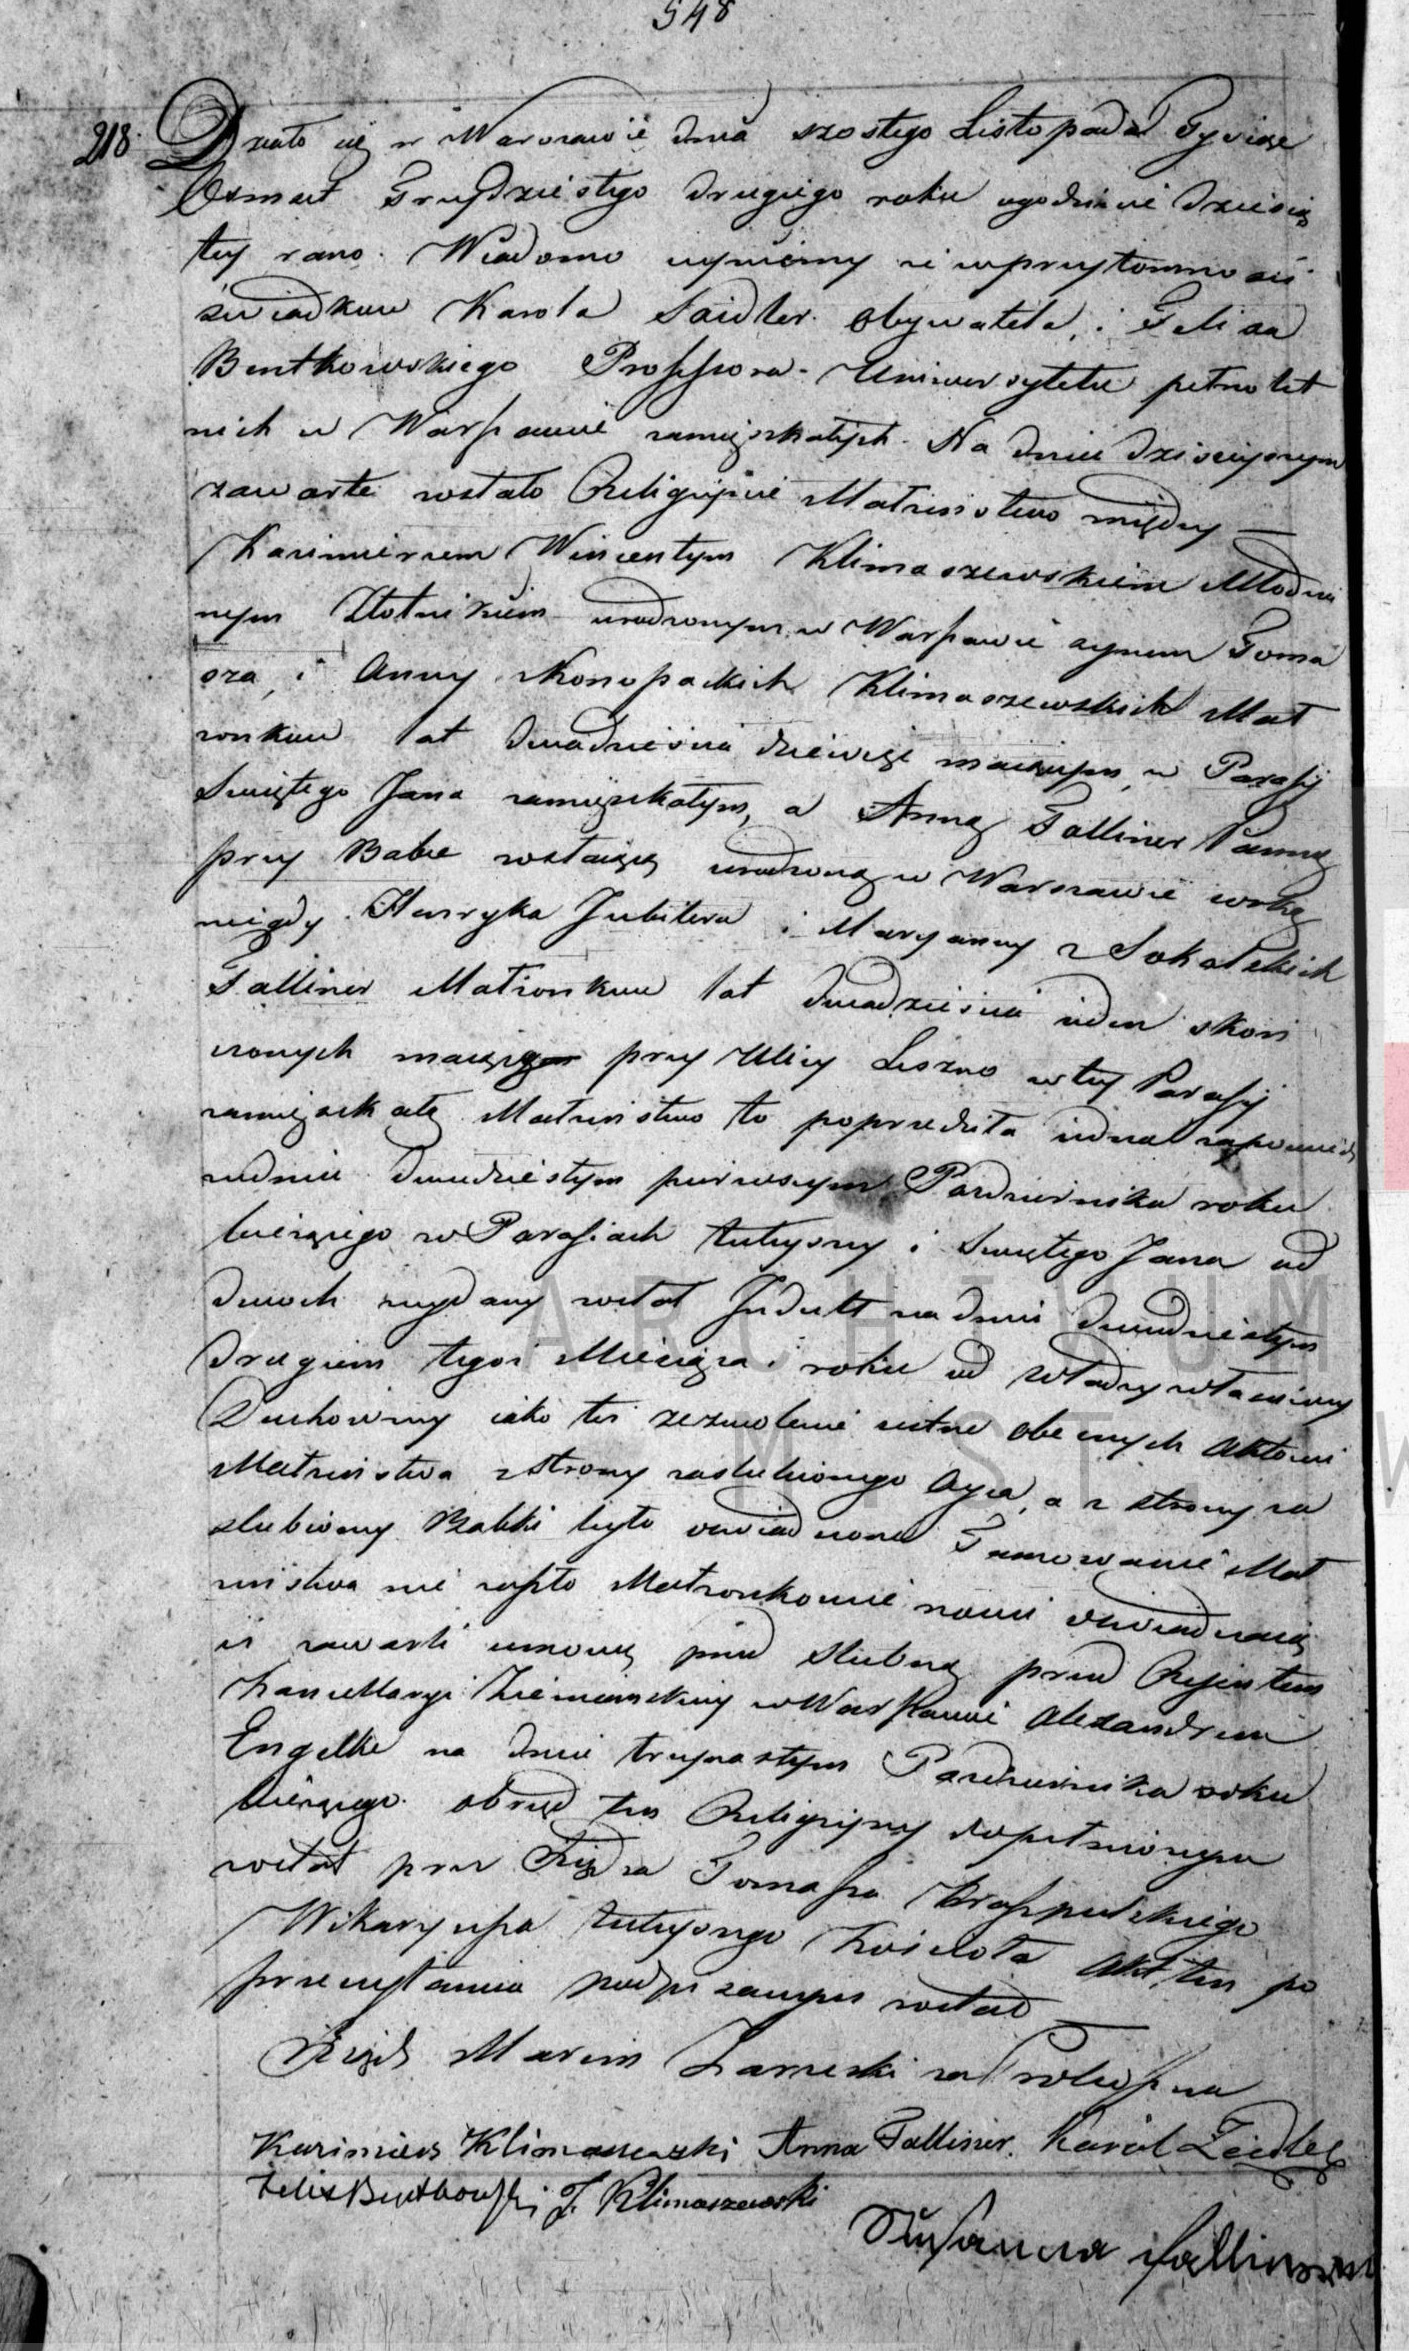 548
218. Działo się w Warszawie dnia szostego Listopada Tysiąc
Osmset Trzydziestego drugiego roku ogodzinie dziesią
tey rano. Wiadomo czyniemy że wprzytomnosci
swiadkow Karola Saidler Obywatela i Felixa
Bentkowskiego Professora Uniwersytetu pełnolet
nich w Warszawie zamięszkałych. Na dniu dzisieyszym
zawarte zostało Religijne Małżenstwo między
Kazimierzem Wincentym Klimaszewskiem Młodzia
nym Złotnikiem urodzonym w Warszawie synem Toma
sza i Anny z Konopackich Klimaszewskich Mał
żonkow lat dwadziescia dziewięć maiącym w Parafij
Swiętego Jana zamięszkałym, a Anną Falliner Panną
przy Babce zostaiącą urodzoną w Warszawie corką
niegdy Henryka Jubilera i Maryanny z Sokalskich
Falliner Małżonkow lat dwadziescia ieden skoń
czonych maiącą przy Ulicy Leszno w tey Parafij
zamięszkałą Małżenstwo to poprzedziła iedna zapowiedz
w dniu dwudziestym pierwszym Pazdziernika roku
bieżącego w Parafiach tuteyszey i Swiętego Jana od
dwoch wydany został Indult na dniu dwudziestym
drugiem tegoż Miesiąca i roku od Władzy własciwey
Duchowney iako też zezwolenie ustne obecnych Aktowi
Małżenstwa z strony zaslubionego Oyca, a z strony za
slubioney Babki było oswiadczone Tamowanie Mał
żeństwa nie zaszło Małżonkowie nowi oswiadczaią
iż zawarli umowę przed slubną przed Rejentem
Kancellaryi Ziemianskiey w Warszawie Alexandrem
Engelke na dniu trzynastym Pazdziernika roku
bieżącego. obrzęd ten Religijny dopełnionym
został przez Xiędza Tomasza
Wikaryusza tuteyszego Kościoła Akt ten po
przeczytaniu podpisanym został
Xiądz Marcin za Proboszcza
Kazimierz Klimaszewski Anna Falliner. Karol Zeidler
Felix Bentkowski J. Klimaszewski
Falliner